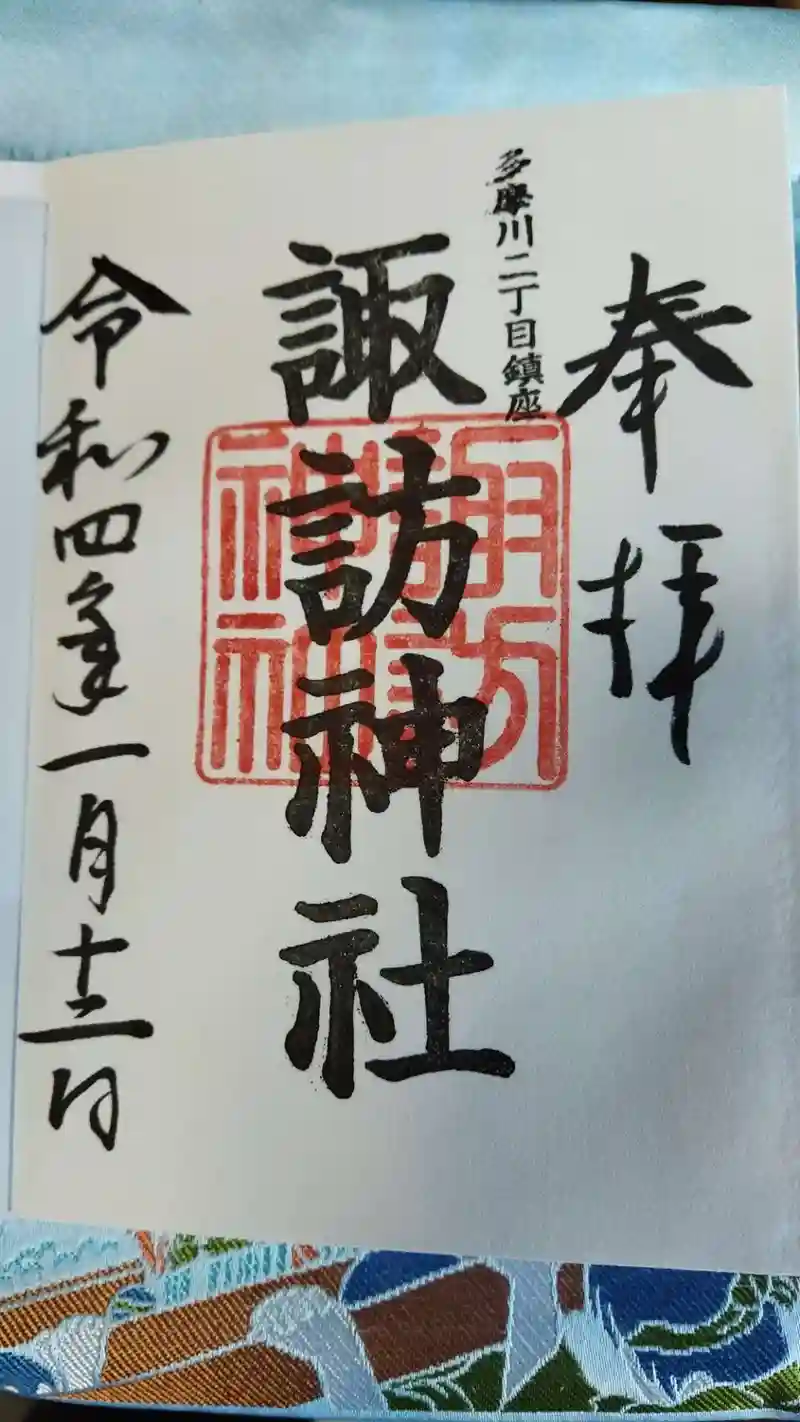 奉拝
多摩川二丁目鎮座
諏訪神社
諏訪神社
令和四年一月十二日